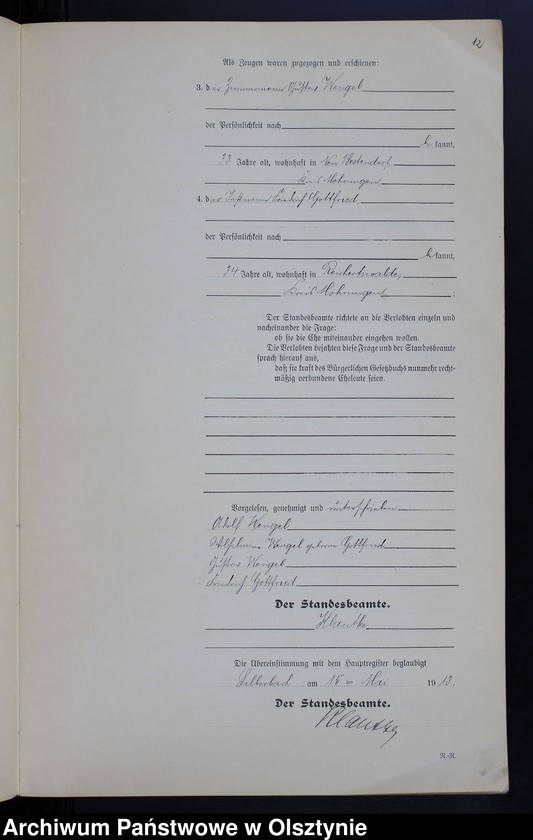 12
Als Zeugen waren zugezogen und erschienen:
3. der Zimmermann Gustav Wengel
der Persönlichkeit nach
be kannt,
33 Jahre alt, wohnhaft in Neu Bestendorf,
Kreis Mohrungen
4. der Instmann Friedrich Gottfried,
der Persönlichkeit nach
be kannt,
34 Jahre alt, wohnhaft in Reichertswalde,
Kreis Mohrungen ;
Der Standesbeamte richtete an die Verlobten einzeln und
nacheinander die Frage:
ob sie die Ehe miteinander eingehen wollen.
Die Verlobten bejahten diese Frage und der Standesbeamte
sprach hierauf aus,
daß sie kraft des Bürgerlichen Gesetzbuchs nunmehr recht-
mäßig verbundene Eheleute seien.
Vorgelesen, genehmigt und unterschrieben
Adolf Wengel
Wilhelmine Wengel geborene Gottfried
Gustav Wengel
Friedrich Gottfried
Der Standesbeamte.
Klautke
Die Übereinstimmung mit dem Hauptregister beglaubigt
am 18 = Mai 1913.
Der Standesbeamte.
Klautke
N.-R.
Archiwum Państwowe w Olsztynie